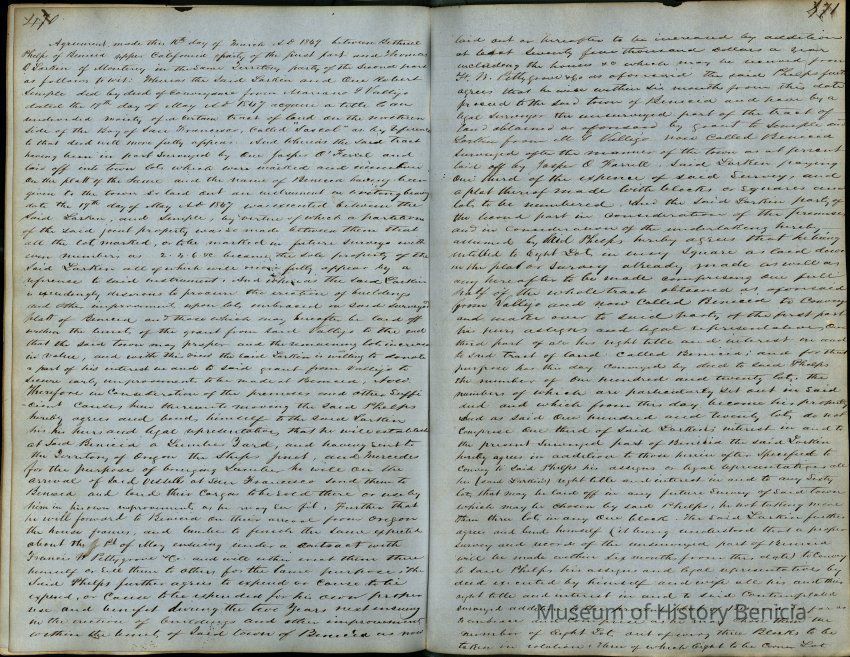 470
Agreement made this 10th day of March A.D. 1849 between Bethuel
Phelps of Benicia upper California party of the first part and Thomas
O. Larkin of Monterey in the same Territory party of the second part
as follows to wit: Whereas the said Larkin and One Robert
Semple did by deed of conveyance from Mariano G Vallejo
dated the 19th day of May AD 1847 acquire a title to an
undivided moiety of a certain tract of land on the northern
side of the Bay of San Francisco, Called "Soscol" as by reference
to that deed will more fully appear. And whereas the said tract
having been in part surveyed by One Jasper O'Farrel and
laid off into town lots which were marked and
On the platt of the survey and the name of Benicia having been
given to the town so laid out an instrument in writing bearing
date the 19th day of May AD 1847 was executed between the
Said Larkin and Semple by virtue of which a partition
of the said joint property was so made between them that
all the lots marked, or to be marked in future surveys with
even numbers as 2. 4. 6. &c became the sole property of the
Said Larkin all of which will more fully appear by a
reference to said instrument. And whereas the said Larkin
is exceedingly desirous to promote the erection of buildings
and other improvements upon lots embraced in said surveyed
platt of Benicia and those which may hereafter be laid off
within the limits of the grant from said Vallejo to the end
that the said town may prosper and the remaining lots increase
in value, and with this view the said Larkin is willing to donate
a part of his interest in and to said grant from Vallejo to
secure early improvements to be made at Benicia, Now
Therefore in Consideration of the premises and other suffi-
cient Causes him thereunto moving the Said Phelps
hereby agrees and binds himself to the said Larkin
his heirs and legal representatives that he will establish
at Said Benicia a Lumber Yard, and having sent to
the Territory of Oregon the Ships Janet, and Mercedes
for the purpose of bringing Lumber he will on the
arrival of Said Vessells at San Francisco send them to
Benicia and land their Cargos to be sold there or use by
him in his own improvements, as he may see fit, Further that
he will forward to Benicia on their arrival from Oregon
the house frames, and lumber to finish the same expected
about the 1st of May ensuing under a Contract with
Francis W Pettygrove & Co and will either erect them there
himself or sell them to others for the same purpose. The
Said Phelps further agrees to expend or Cause to be
expend, or Cause to be expended for his own proper
use and benefit during the two Years next ensuing
in the erection of buildings and other improvements
within the limits of Said town of Benicia as now
471
laid out or hereafter to be increased by addition
at least Seventy five thousand dollars a year
including the houses &c which may be received from
F. W. Pettygrove & Co as aforesaid the said Phelps further
agrees that he will within six months from this date
proceed to the said town of Benicia and have by a
legal surveyor the unsurveyed part of the tract of
land obtained as aforesaid by grant to Semple and
Larkin from M G Vallejo now Called Benicia
surveyed after the manner of the town as at present
laid off by Jasper O'Farrell. Said Larkin paying
One third of the expense of said Survey and
a plat thereof made with blocks or Squares and
lots to be numbered. And the said Larkin party of
the second part in Consideration of the premises
and in Consideration of the undertaking hereby
assumed by said Phelps hereby agrees that he being
entitled to Eight Lots in every Square as laid down
in the plat or Survey already made as well as
any hereafter to be made Comprising One full
half of the whole tract obtained as aforesaid
from Vallejo and now Called Benicia to Convey
and make over to said party of the first part
his heirs assigns and legal representatives One
third part of all his right title and interest in and
to said tract of land Called Benicia; and for that
purpose has this day Conveyed by deed to said Phelps
the number of One hundred and twenty lots, the
numbers of which are particularly set out in said
deed and which from this day become his property
And as said One hundred and twenty lots do not
Comprise One third of said Larkins interest in and to
the present Surveyed part of Benicia the said Larkin
hereby agrees in addition to those herein after specified to
Convey to said Phelps his assigns or legal representatives all
his (said Larkins) right title and interest in and to any Sixty
lots that may be laid off in any future Survey of said town
which may be chosen by said Phelps, he not taking more
than three lots in any One block. The said Larkin further
agrees and binds himself (it being understood that a proper
survey and record of the unsurveyed part of Benicia
will be made within Six months from this date) to Convey
to said Phelps his assigns and legal representatives by
deed executed by himself and wife all his and their
right title and interest in and to said Contemplated
Surveyed
number of Eight Lots out of every three Blocks to be
taken in rotation: three of which Eight to be Corner Lots
Museum of History Benicia